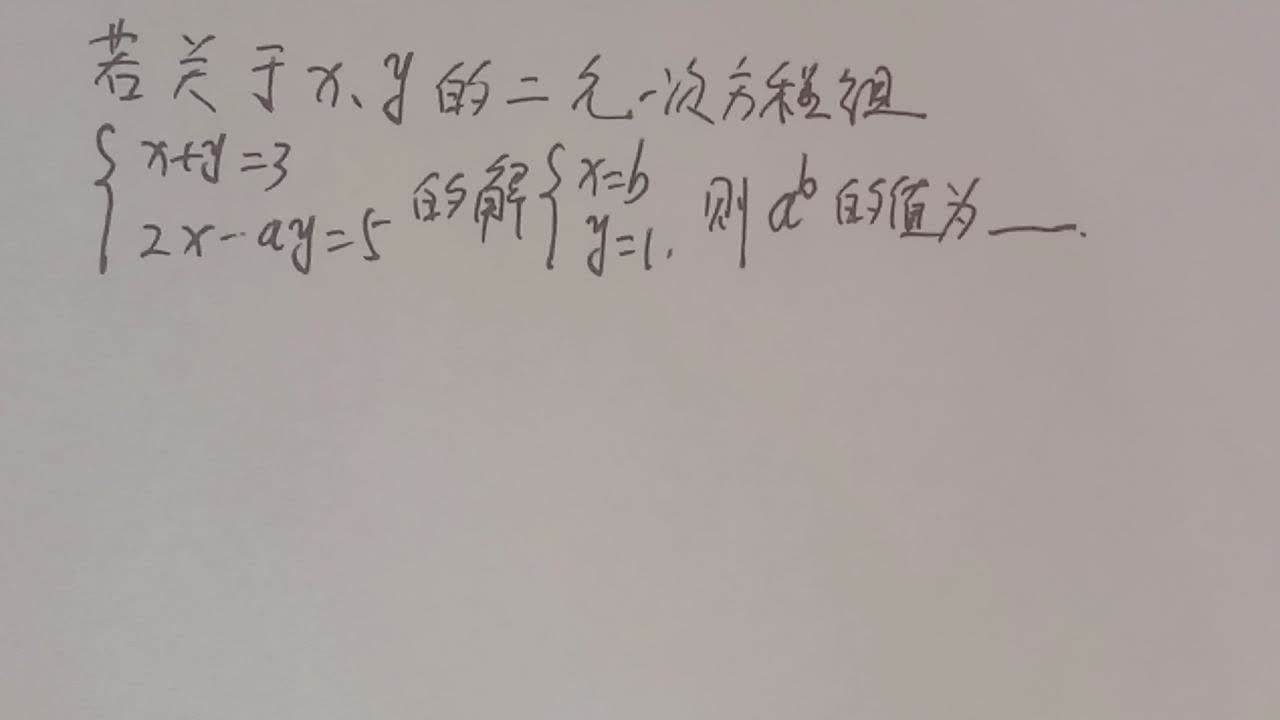 若关于x、y的二元一次方程组
{x+y=3
2x-ay=5 的解 {x=b
y=1. 则 a^b 的值为___.